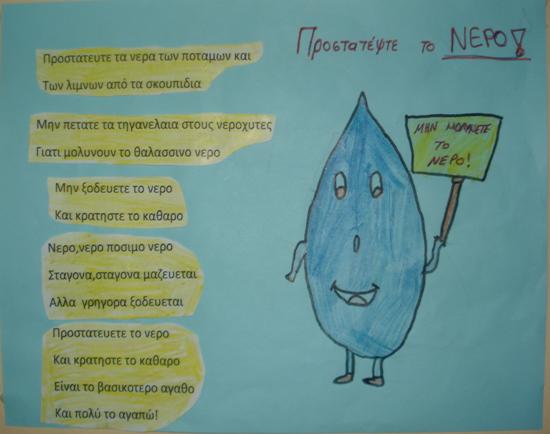 Προστατέψτε το ΝΕΡΟ!
Προστατευτε τα νερα των ποταμων και
Των λιμνων από τα σκουπιδια
Μην πετατε τα τηγανελαια στους νεροχυτες
Γιατι μολυνουν το θαλασσινο νερο
Μην ξοδευετε το νερο
Και κρατηστε το καθαρο
Νερο,νερο ποσιμο νερο
Σταγονα,σταγονα μαζευεται
Αλλα γρηγορα ξοδευεται
Προστατευετε το νερο
Και κρατηστε το καθαρο
Είναι το βασικοτερο αγαθο
Και πολύ το αγαπώ!
ΜΗΝ
ΤΟ
ΝΕΡΟ!